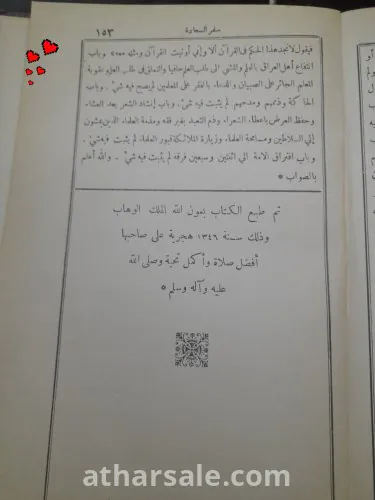 سفر السعادة ١٥٣
فيقول لانجد هذا الحكم في القرآن ألا وإني أوتيت القرآن ومثله معه وباب
انتفاع أهل العراق بالعلم والمشي الى طلب العلم حافيا والتملق في طلب العلم وعقوبة
المعلم الجائر على الصبيان والدعاء بالفقر على المعلمين لم يصح فيه شئ . وباب
الحاكة وذمهم ومدحهم لم يثبت فيه شئ . وباب إنشاد الشعر بعد العشاء
وحفظ العرض باعطاء الشعراء وذم التعبد بغير فقه ومذمة العلماء الذين يمشون
إلي السلاطين ومسامحة العلماء وزيارة الملائكة قبور العلماء لم يثبت فيه شئ .
وباب افتراق الامة الي اثنتين وسبعين فرقة لم يثبت فيه شئ . والله أعلم
بالصواب *
تم طبع الكتاب بعون الله الملك الوهاب
وذلك سنة ١٣٤٦ هجرية على صاحبها
أفضل صلاة وأكمل تحية وصلى الله
عليه وآله وسلم *
atharsale.com